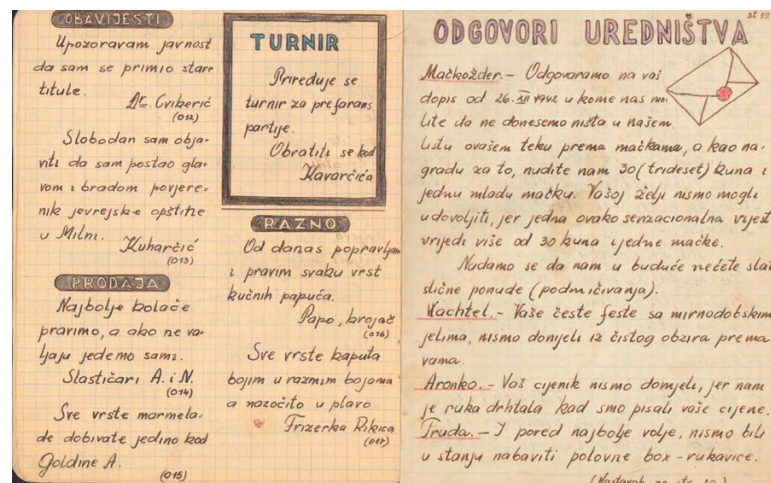 OBAVIJESTI
Upozoravam javnost
da sam se primio stare
titule.
Dr. Cviberić
(012)
Slobodan sam obja-
viti da sam postao gla-
vom i bradom povjere-
nik jevrejske opštine
u Milni.
Kuharčić
(013)
PRODAJA
Najbolje kolače
pravimo, a ako ne va-
ljaju jedemo sami.
Slastičari A. i N.
(014)
Sve vrste marmela-
de dobivate jedino kod
Goldine A.
(015)
TURNIR
Priređuje se
turnir za preferans
partije.
Obratiti se kod
Kavarčića
RAZNO
Od danas popravljam
i pravim svaku vrst
kućnih papuča.
Papo, brojač
(016)
Sve vrste kaputa
bojim u raznim bojama
a nazočito u plavo
Frizerka Rikica
(017)
st 19
ODGOVORI UREDNIŠTVA
Mačkožder. - Odgovaramo na vaš
dopis od 26. XII 1942 u kome nas mo
lite da ne donesemo ništa u našem
listu o vašem teku prema mačkama, a kao na-
gradu za to, nudite nam 30 (trideset) kuna i
jednu mladu mačku. Vašoj želji nismo mogli
udovoljiti, jer jedna ovako senzacionalna vijest
vrijedi više od 30 kuna i jedne mačke.
Nadamo se da nam u buduće nećete slati
slične ponude (podmićivanja).
Wachtel. - Vaše česte feste sa mirnodobskim
jelima, nismo donijeli iz čistog obzira prema
vama.
Aronko. - Vaš cijenik nismo donijeli, jer nam
je ruka drhtala kad smo pisali vaše cijene.
Truda. - I pored najbolje volje, nismo bili
u stanju nabaviti polovne box - rukavice.
(Nastavak na str.